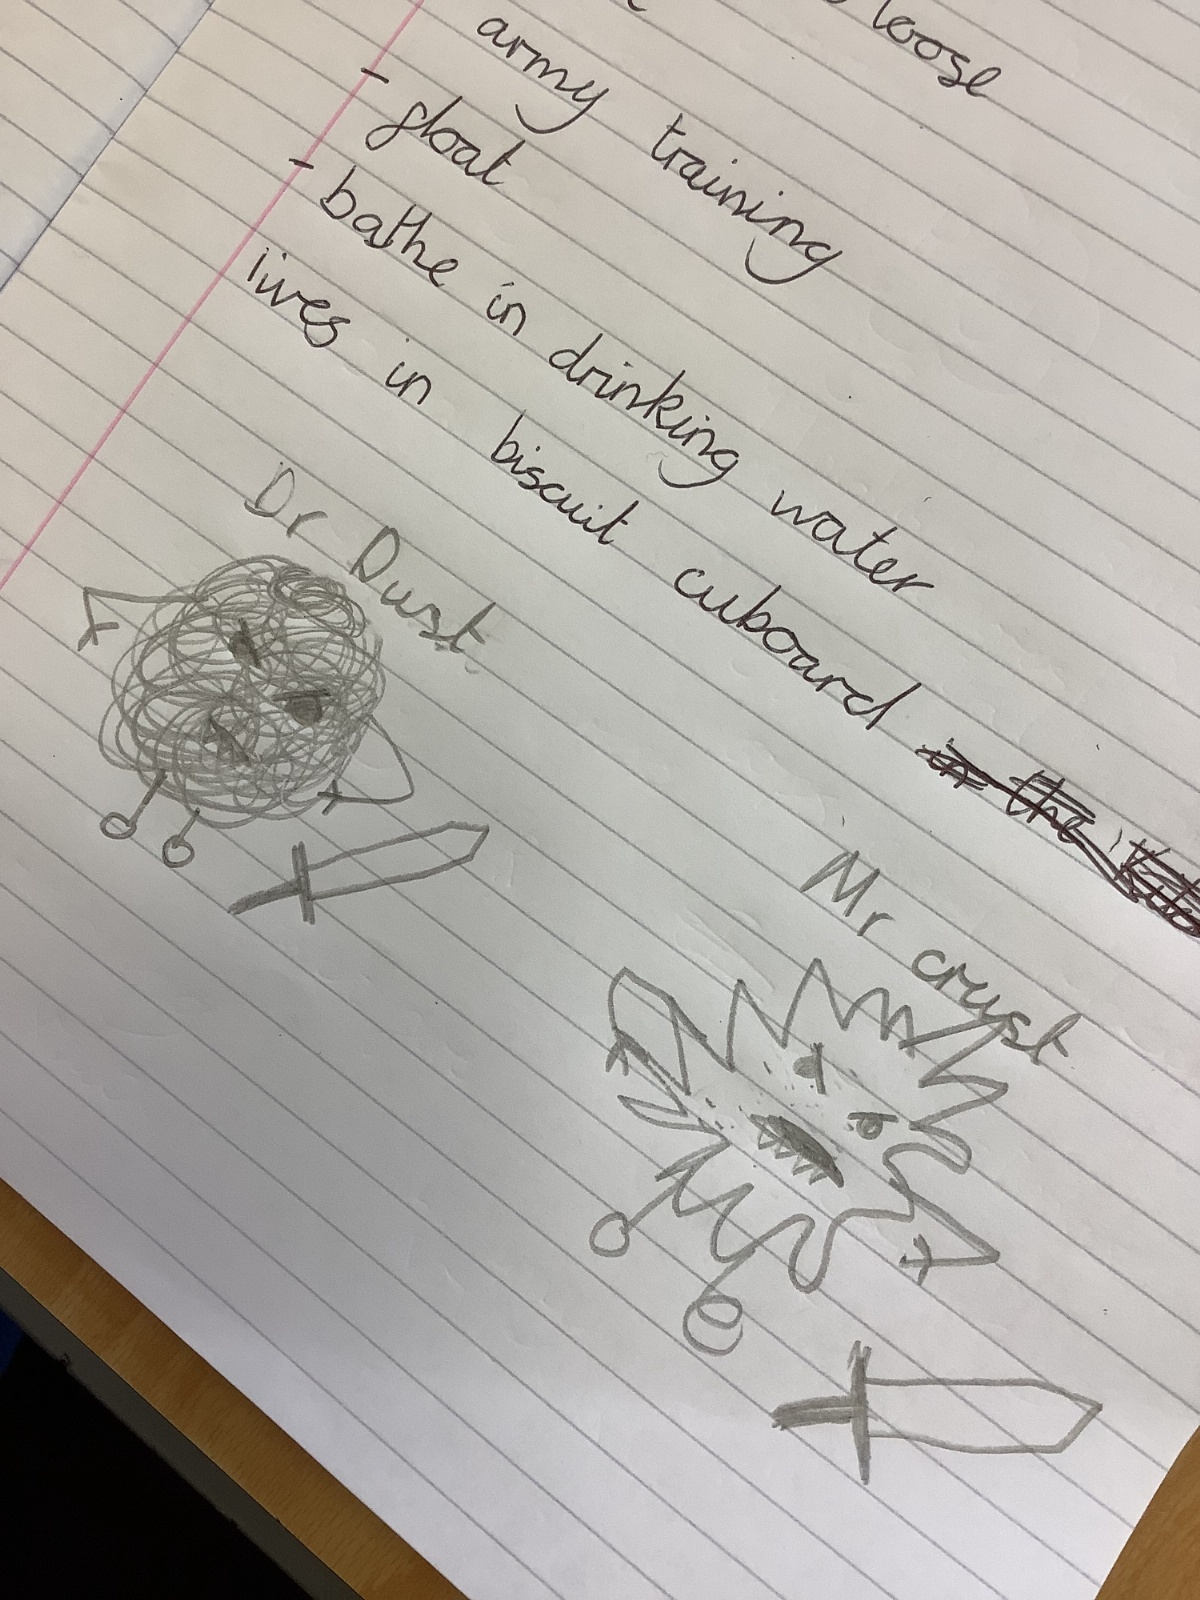 loose
army training
- gloat
- bathe in drinking water
lives in biscuit cuboard in the
Dr Dust
Mr crust